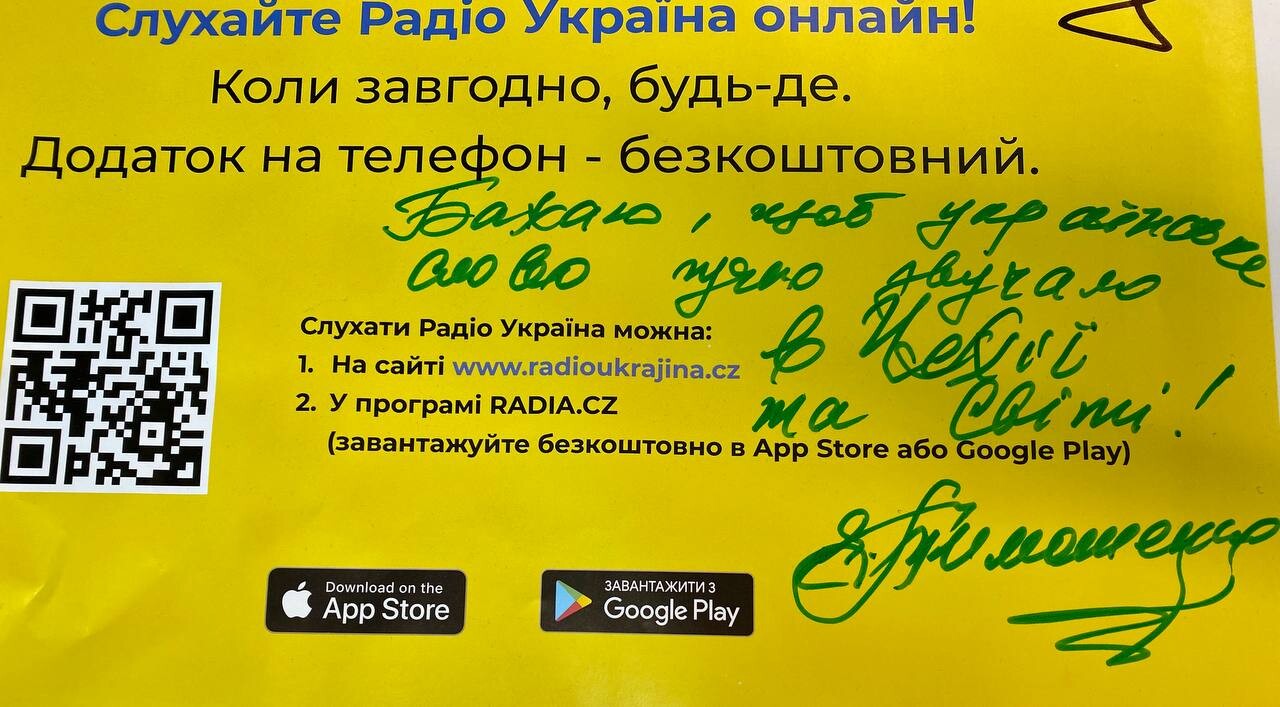 Слухайте Радіо Україна онлайн!
Коли завгодно, будь-де.
Додаток на телефон - безкоштовний.
Бажаю, щоб українське
слово гучно звучало
в Чехії
та світі!
Слухати Радіо Україна можна:
1. На сайті www.radioukrajina.cz
2. У програмі RADIA.CZ
(завантажуйте безкоштовно в App Store або Google Play)
Є. Тимошенко
Download on the
App Store
ЗАВАНТАЖИТИ З
Google Play